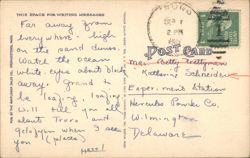 THIS SPACE FOR WRITING MESSAGES
POST CARD
Far away from
everywhere - high
on the sand dunes.
Watch the ocean
white-caps about block
away. Grand to
be loafing, loafing.
Will tell you all
about Truro and
galapin when I see
you (places)
Hazel
Miss Betty Trettyman
Katherine Schneider
Experiment Station
Hercules Powder Co.
Wilmington
Delaware